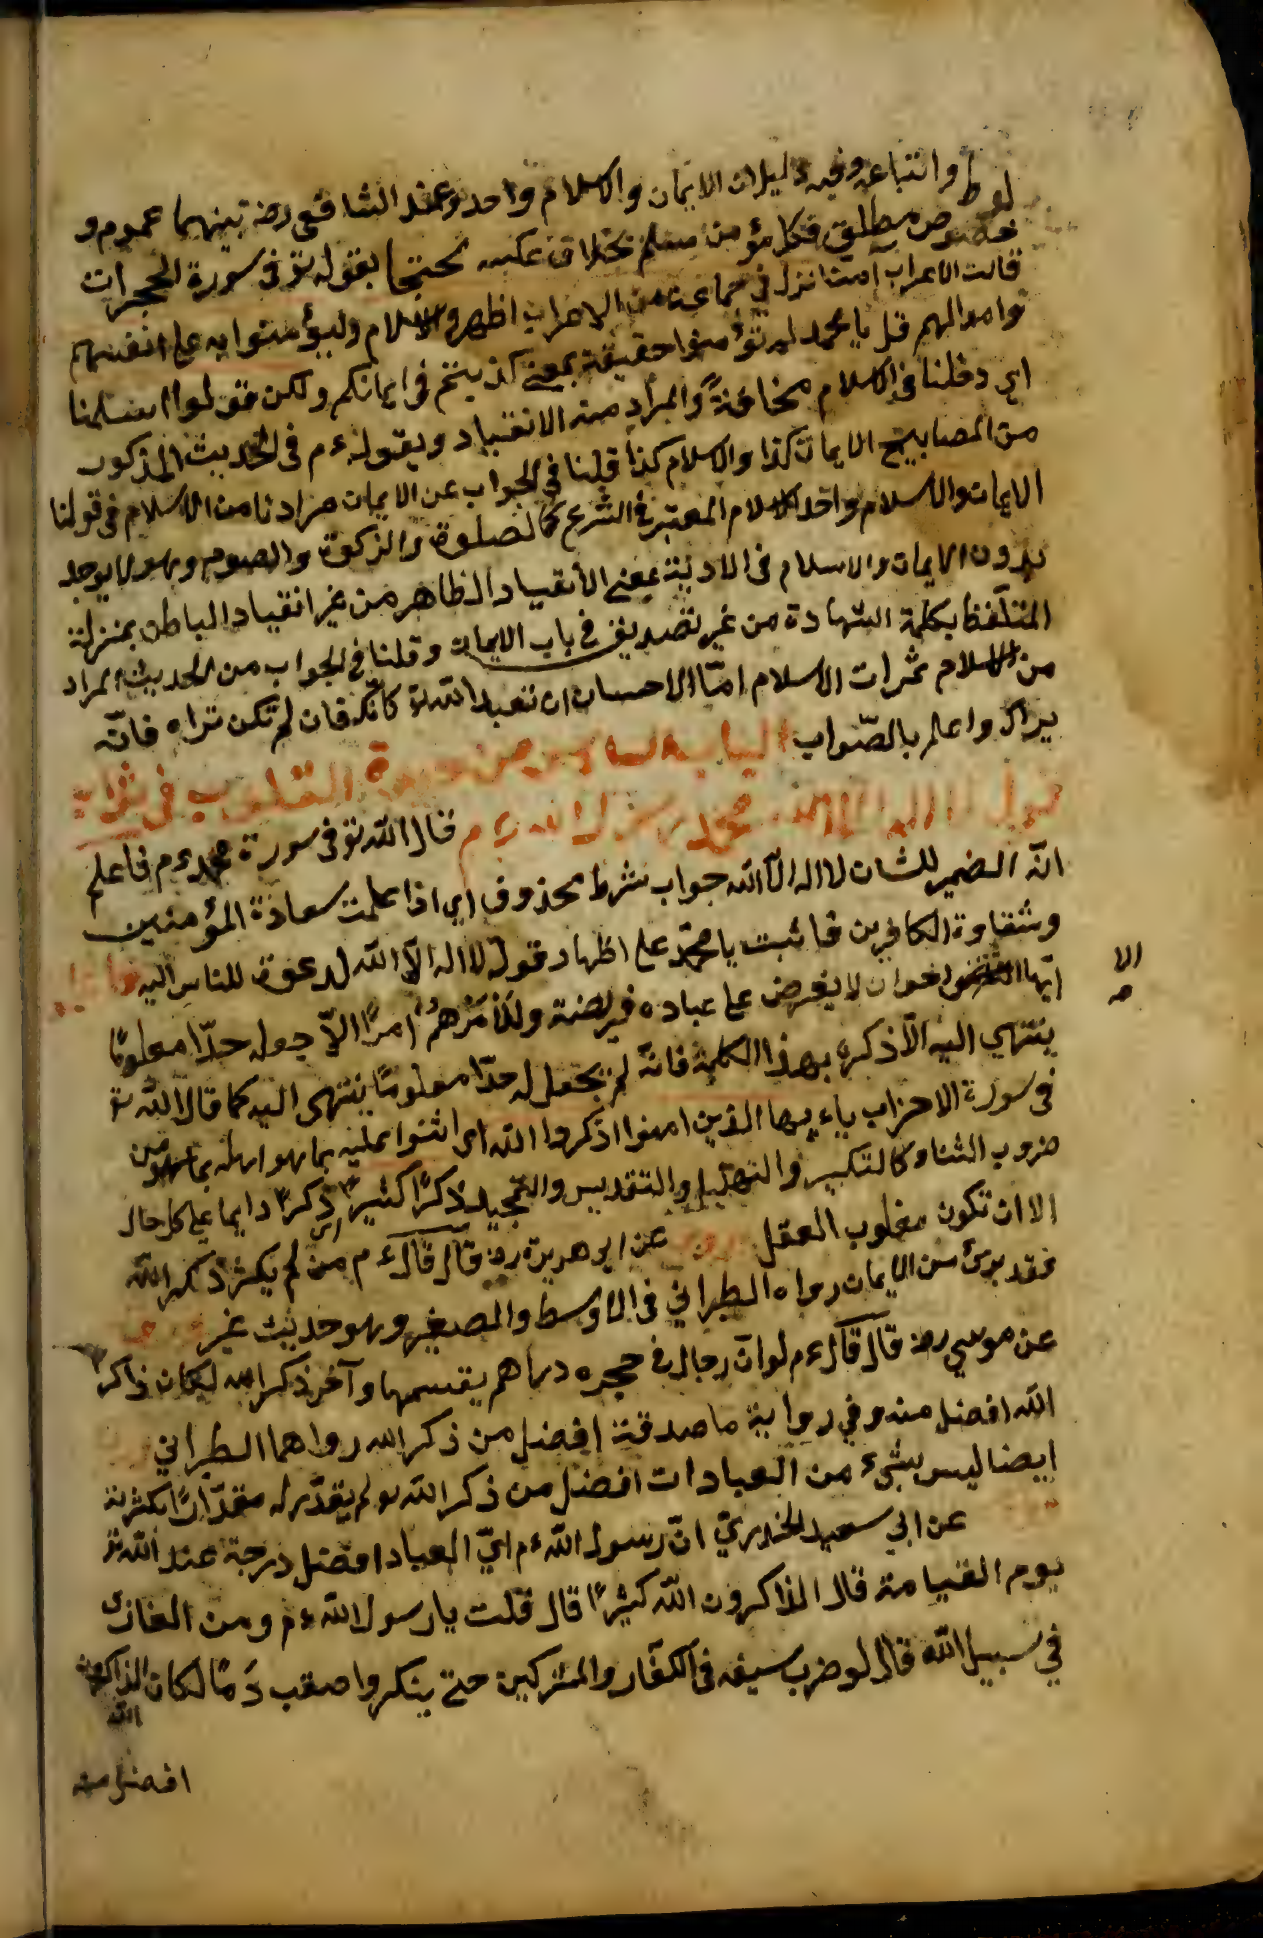 لوط واتباعه وفيه دليل ان الايمان والاسلام واحد وعند الشافعى رضه بينهما عموم و
خصوص مطلق فكل مؤمن مسلم بخلاف عكسه محتجا بقوله تع فى سورة الحجرات
قالت الاعراب آمنا نزل فى جماعة من الاعراب اظهروا الاسلام وليؤمنوا به على انفسهم
واموالهم قل يا محمد لم تؤمنوا حقيقة بمعنى كذبتم فى ايمانكم ولكن قولوا اسلمنا
اى دخلنا فى الاسلام مخافة والمراد منه الانقياد وبقوله ءم فى الحديث المذكور
من المصابيح الايمان كذا والاسلام كذا قلنا فى الجواب عن الايمان مرادنا من الاسلام فى قولنا
الايمان والاسلام واحد الاسلام المعتبر فى الشرع كالصلوة والزكوة والصوم وهو لا يوجد
بدون الايمان والاسلام فى الاية بمعنى الانقياد الظاهر من غير انقياد الباطن بمنزلة
المتلفظ بكلمة الشهادة من غير تصديق فى باب الايمان وقلنا فى الجواب من الحديث المراد
من الاسلام ثمرات الاسلام امّا الاحسان ان تعبد الله تع كانّك فان لم تكن تراه فانّه
يراك واعلم بالصّواب الباب السادس من حيوة القلوب فى ثواب
قول لا اله الا الله محمد رسول الله ءم قال الله تع فى سورة محمد ءم فاعلم
انّه الضمير للشان لا اله الّا الله جواب شرط محذوف اى اذا علمت سعادة المؤمنين
وشقاوة الكافرين فاثبت يا محمّد على اظهار قول لا اله الّا الله لدعوة للناس اليه فاعلم
ايّها الاخوان لا يفرض على عباده فريضة ولا أمرهم امرًا الاّ جعل حدّا معلومًا
الا
ينتهى اليه الّا ذكره بهذا الكلمة فانّه لم يجعل له حدّا معلومًا ينتهى اليه كما قال الله تع
فى سورة الاحزاب ياءيها الذين امنوا اذكروا الله اى اثنوا عليه بما هو اهله من
ضروب الثناء كالتكبير والتهليل والتقديس والتمجيد ذكرًا كثيرًا اى ذكرًا دايما على كل حال
الا ان تكون مغلوب العقل عن ابو هريرة رضه قال قال ءم من لم يكثر ذكر الله
فقد برئ من الايمان رواه الطبرانى فى الاوسط والصغير وهو حديث غريب
عن موسى رضه قال قال ءم لو انّ رجال فى حجره دراهم يقسمها وآخر ذكر الله لكان ذاكر
الله افضل منه وفى رواية ما صدقة افضل من ذكر الله رواهما الطبرانى
ايضا ليس بشىء من العبادات افضل من ذكر الله ولم يقدّر له مقدّارًا بكثرته
عن ابى سعيد الخدرىّ انّ رسول الله ءم اىّ العباد افضل درجة عند الله تع
يوم القيامة قال الذاكرون الله كثيرًا قال قلت يا رسول الله ءم ومن الغازى
فى سبيل الله قال لو ضرب سيفه فى الكفّار والمشركين حتى ينكر واصقب دَمًا لكان الذاكرون
الله
افضل منه